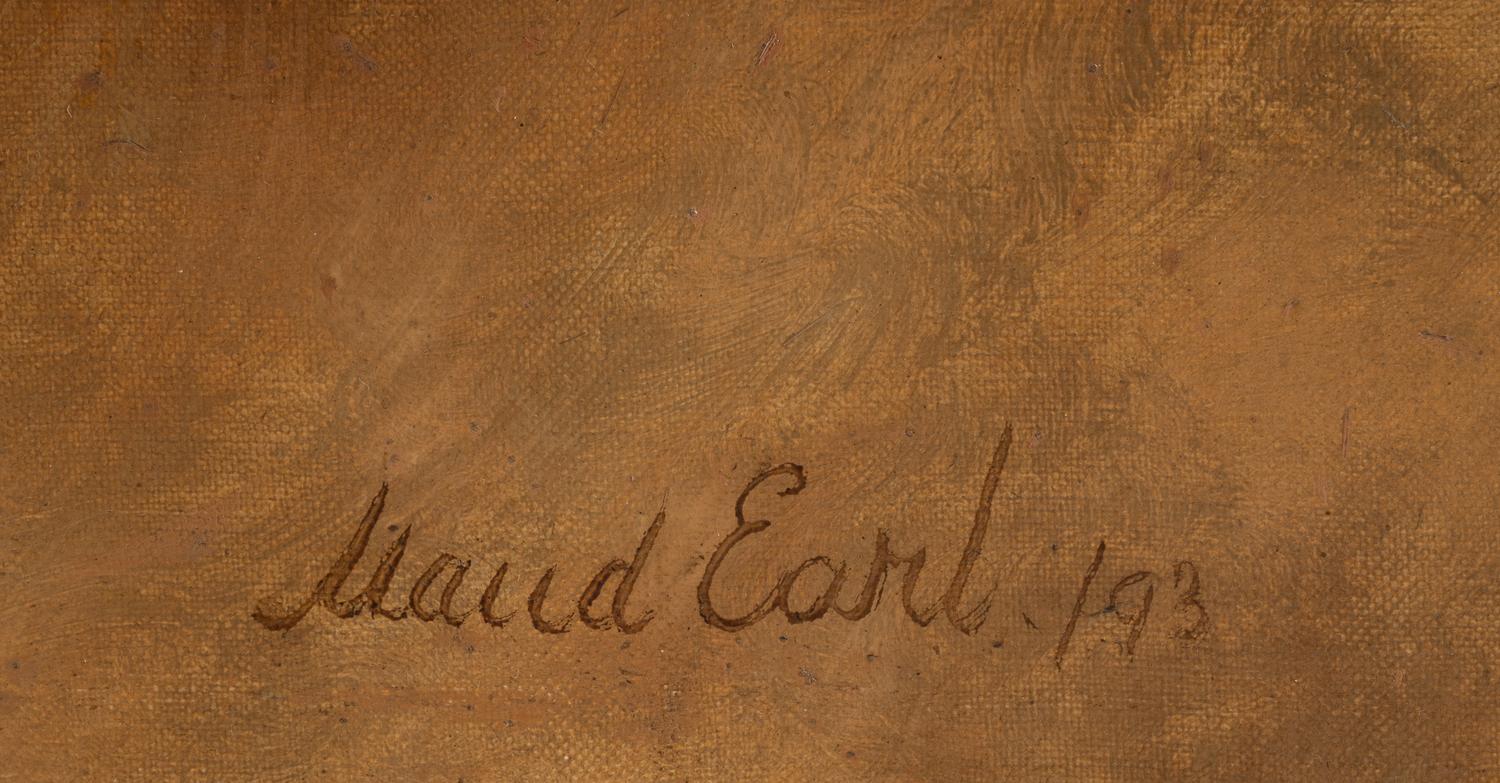 Maud Earl. /93